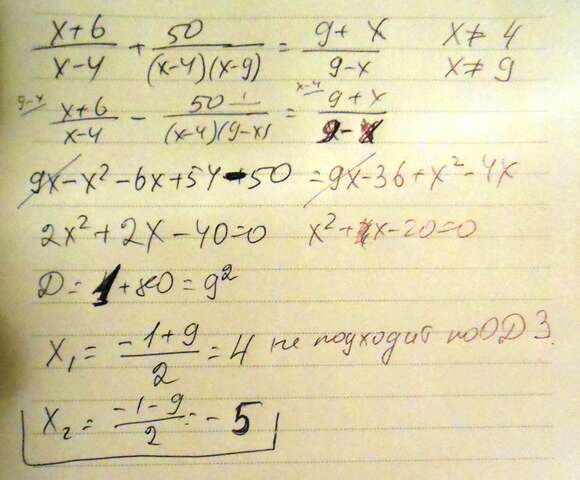 (x+6)/(x-4) + 50/((x-4)(x-9)) = (9+x)/(9-x) x≠4
x≠9
9-x/ (x+6)/(x-4) - 50/((x-4)(9-x)) = x-4/ (9+x)/(9-x)
9x-x²-6x+54-50 = 9x-36+x²-4x
2x²+2x-40=0 x²+1x-20=0
D=1+80=9²
x₁=(-1+9)/2=4 не подходит по ОДЗ.
x₂=(-1-9)/2=-5